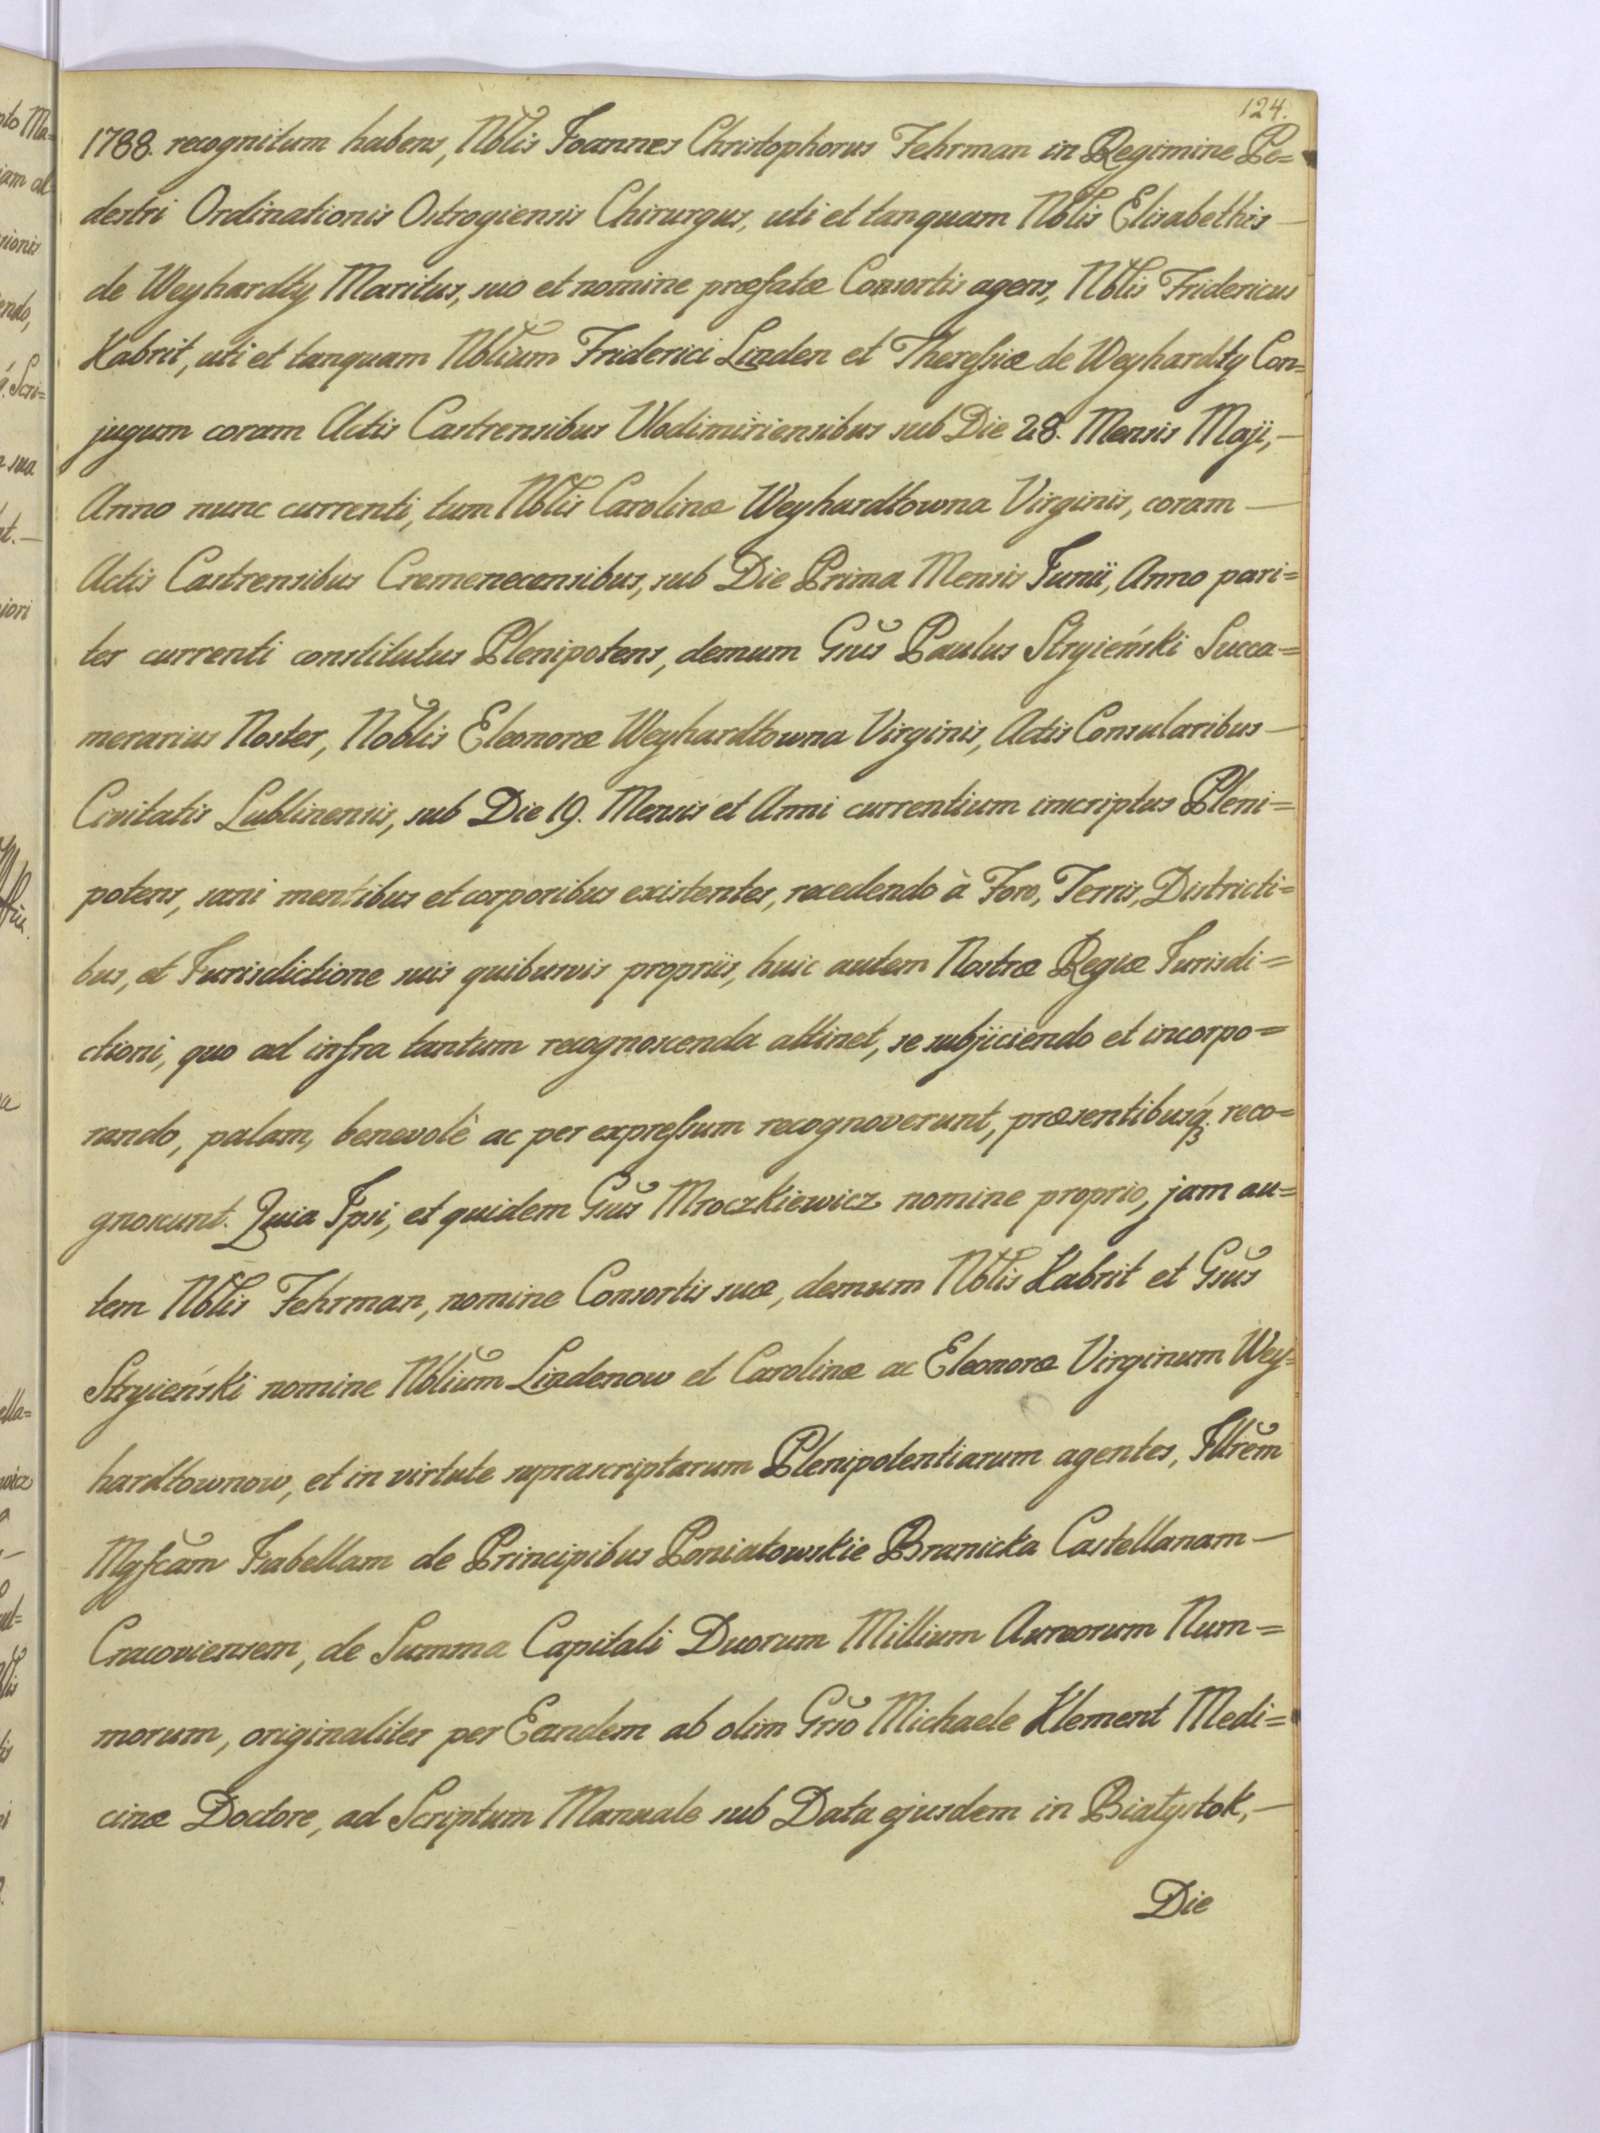 124.
1788. recognitum habens, Nblis Joannes Christophorus Fehrman in Regimine Pe=
destri Ordinationis Ostrogiensis Chirurgus, uti et tanquam Nblis Elisabethis —
de Weyhardty Maritus, suo et nomine præfatæ Consortis agens, Nblis Fridericus
Kabrit, uti et tanquam Nblium Friderici Linden et Theresiæ de Weyhardty Con=
jugum coram Actis Castrensibus Vlodimiriensibus sub Die 28. Mensis Maji, —
Anno nunc currenti, tum Nblis Carolinæ Weyhardtowna Virginis, coram —
Actis Castrensibus Cremenecensibus, sub Die Prima Mensis Junii, Anno pari=
ter currenti constitutus Plenipotens, demum Gsus Paulus Stryieński Succa=
merarius Noster, Noblis Eleonoræ Weyhardtowna Virginis, Actis Consularibus —
Civitatis Lublinensis, sub Die 19. Mensis et Anni currentium inscriptus Pleni=
potens, sani mentibus et corporibus existentes, recedendo à Foro, Terris, Districti=
bus, et Jurisdictione suis quibusvis propriis, huic autem Nostræ Regiæ Jurisdi=
ctioni, quo ad infra tantum recognoscenda attinet, se subjiciendo et incorpo=
rando, palam, benevolè ac per expressum recognoverunt, præsentibusq́ʒ reco=
gnoscunt. Quia Ipsi, et quidem Gsus Mroczkiewicz nomine proprio, jam au=
tem Nblis Fehrman, nomine Consortis suæ, demum Nblis Kabrit et Gsus
Stryieński nomine Nblium Lindenow et Carolinæ ac Eleonoræ Virginum Wey=
hardtownow, et in virtute suprascriptarum Plenipotentiarum agentes, Illrem
Mgfcam Isabellam de Principibus Poniatowskie Branicka Castellanam —
Cracoviensem, de Summa Capitali Duorum Millium Aureorum Num=
morum, originaliter per Eandem ab olim Gso Michaele Klement Medi=
cinæ Doctore, ad Scriptum Manuale sub Data ejusdem in Białystok, —
Die